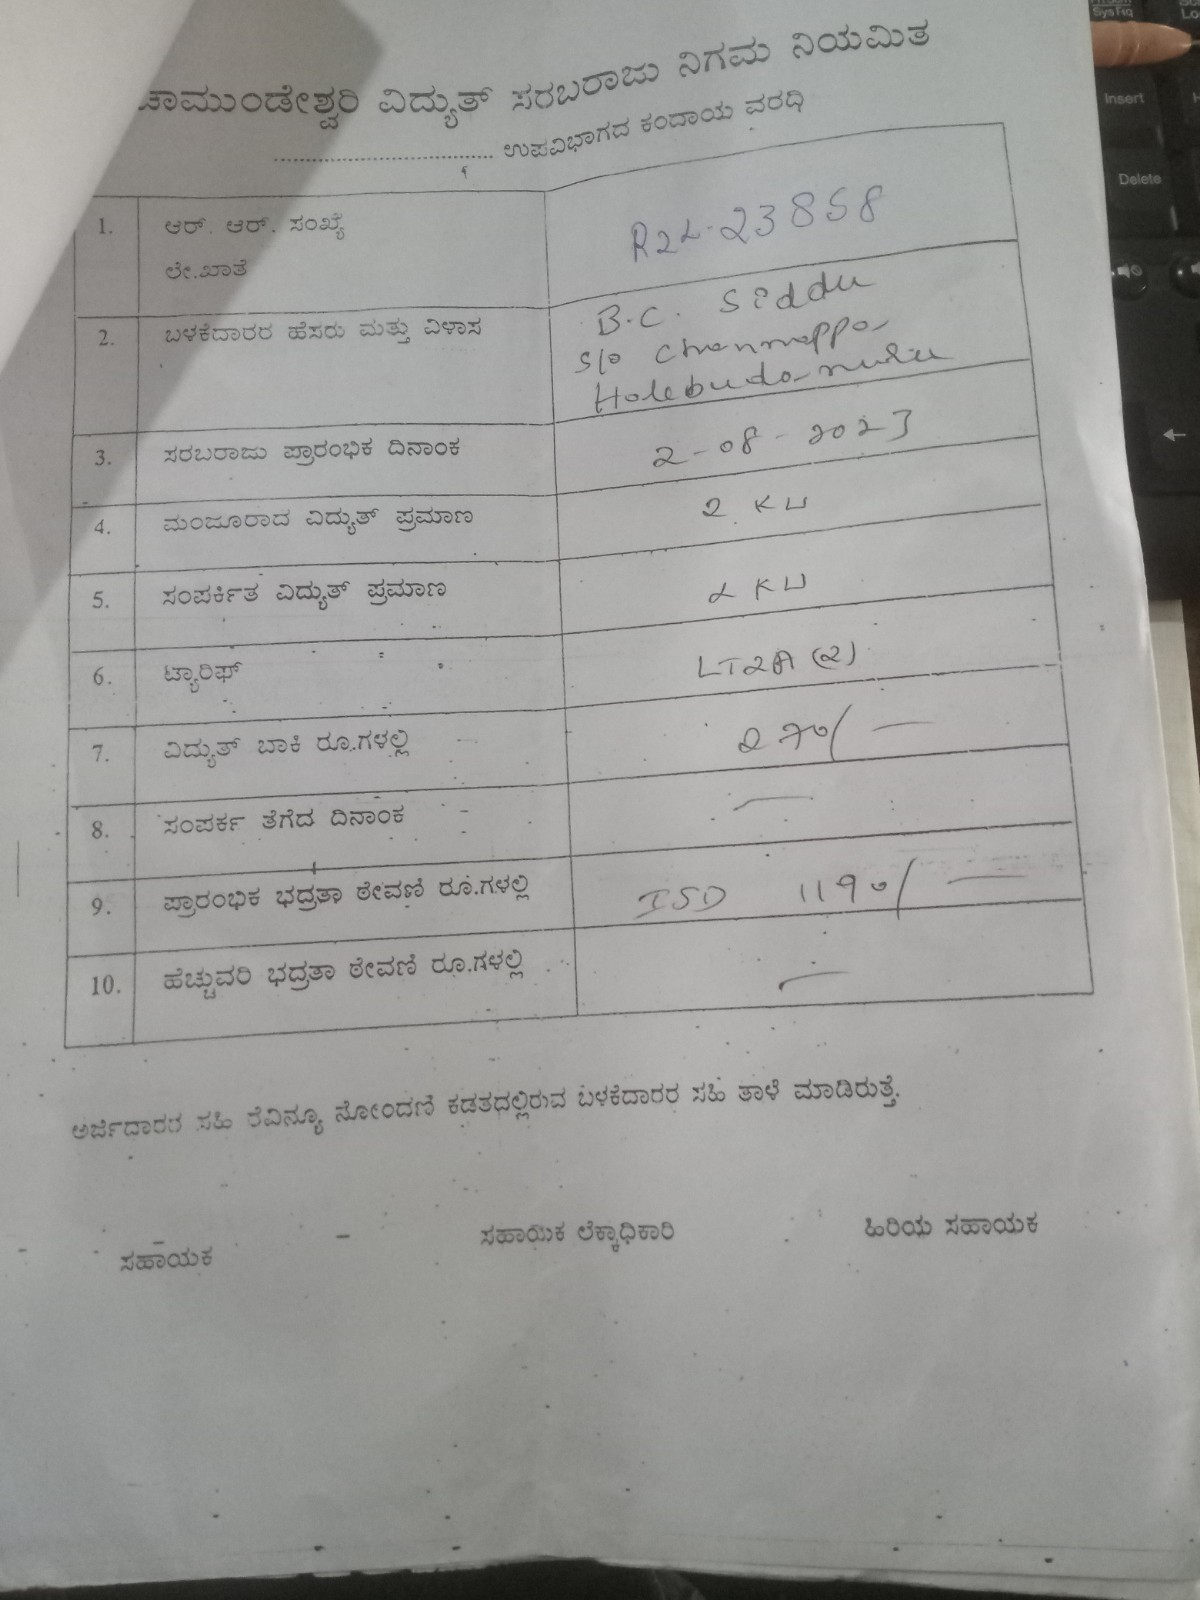 ಚಾಮುಂಡೇಶ್ವರಿ ವಿದ್ಯುತ್ ಸರಬರಾಜು ನಿಗಮ ನಿಯಮಿತ
........................................ ಉಪವಿಭಾಗದ ಕಂದಾಯ ವರದಿ
1. ಆರ್. ಆರ್. ಸಂಖ್ಯೆ
ಲೇ.ಖಾತೆ
R2L-23858
2. ಬಳಕೆದಾರರ ಹೆಸರು ಮತ್ತು ವಿಳಾಸ
B.C. Siddu
S/o Channappa
Holebudanuru
3. ಸರಬರಾಜು ಪ್ರಾರಂಭಿಕ ದಿನಾಂಕ 2-08-2023
4. ಮಂಜೂರಾದ ವಿದ್ಯುತ್ ಪ್ರಮಾಣ 2 KW
5. ಸಂಪರ್ಕಿತ ವಿದ್ಯುತ್ ಪ್ರಮಾಣ 2 KW
6. ಟ್ಯಾರಿಫ್ LT2A (2)
7. ವಿದ್ಯುತ್ ಬಾಕಿ ರೂ.ಗಳಲ್ಲಿ 270/—
8. ಸಂಪರ್ಕ ತೆಗೆದ ದಿನಾಂಕ —
9. ಪ್ರಾರಂಭಿಕ ಭದ್ರತಾ ಠೇವಣಿ ರೂ.ಗಳಲ್ಲಿ ISD 1190/—
10. ಹೆಚ್ಚುವರಿ ಭದ್ರತಾ ಠೇವಣಿ ರೂ.ಗಳಲ್ಲಿ —
ಅರ್ಜಿದಾರರ ಸಹಿ ರೆವಿನ್ಯೂ ನೋಂದಣಿ ಕಡತದಲ್ಲಿರುವ ಬಳಕೆದಾರರ ಸಹಿ ತಾಳೆ ಮಾಡಿರುತ್ತೆ.
ಸಹಾಯಕ ಸಹಾಯಕ ಲೆಕ್ಕಾಧಿಕಾರಿ ಹಿರಿಯ ಸಹಾಯಕ
Insert
Delete